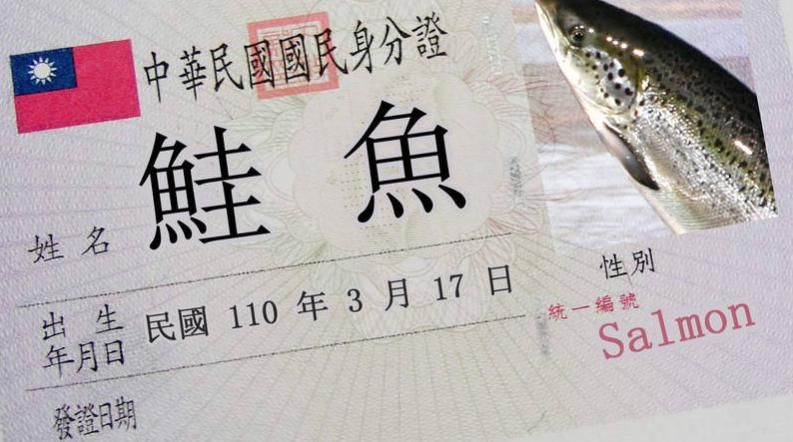 中華民國國民身分證
姓名 鮭魚
出生年月日 民國 110 年 3 月 17 日
性別
統一編號
Salmon
發證日期